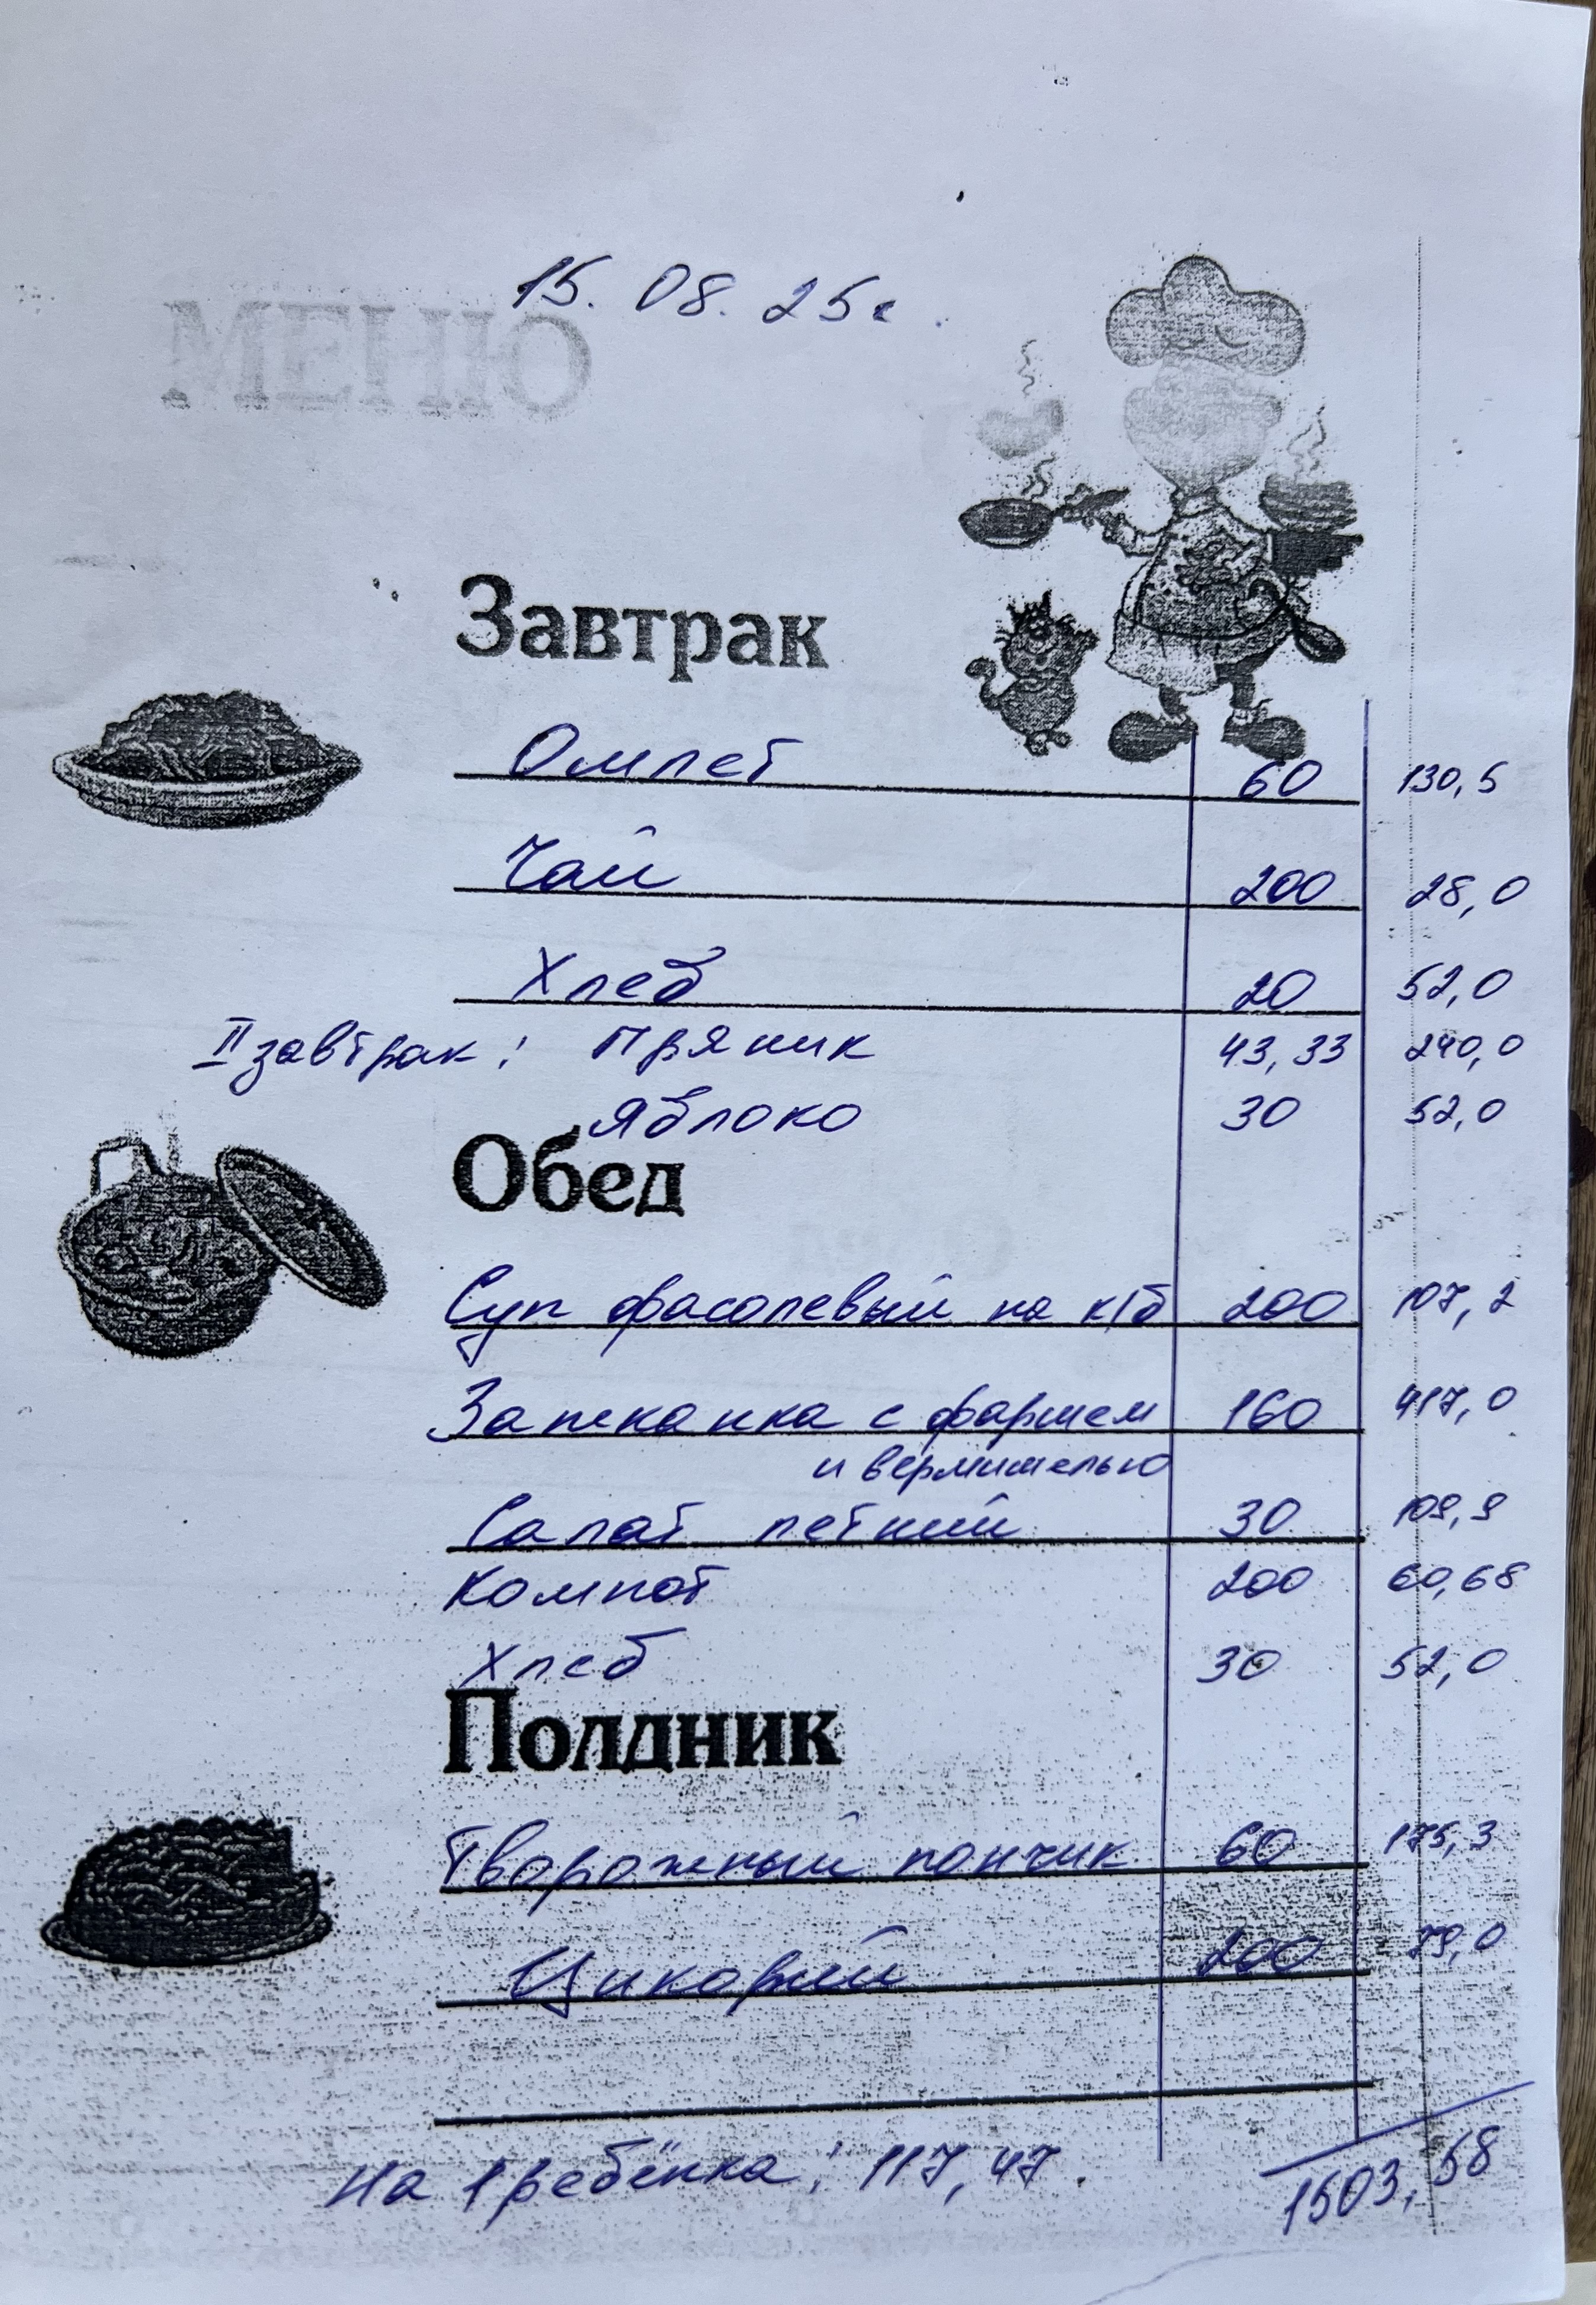 15. 08. 25г.
МЕНЮ
Завтрак
Омлет 60 130,5
Чай 200 28,0
Хлеб 20 52,0
II завтрак: Пряник 43,33 240,0
Яблоко 30 52,0
Обед
Суп фасолевый на к/б 200 107,2
Запеканка с фаршем 160 417,0
и вермишелью
Салат летний 30 109,9
Компот 200 60,68
Хлеб 30 52,0
Полдник
Творожный пончик 60 175,3
Цикорий 200 79,0
На 1 ребёнка: 117,47. 1503,58